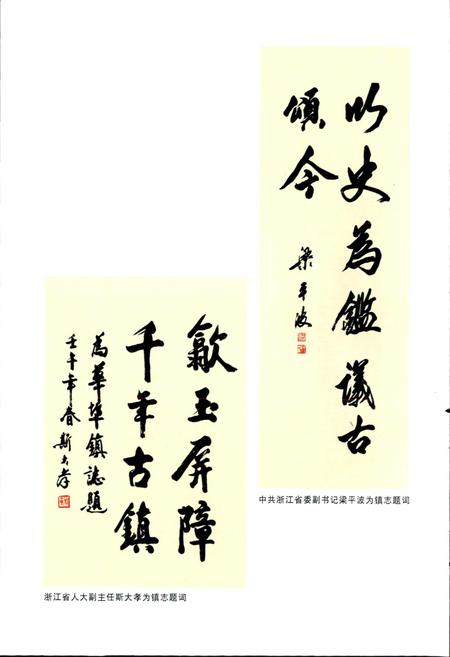 以史為鑑議古
頌今
梁平波
中共浙江省委副书记梁平波为镇志题词
歙玉屏障
千年古鎮
為華埠鎮誌題
壬午年春斯大孝
浙江省人大副主任斯大孝为镇志题词